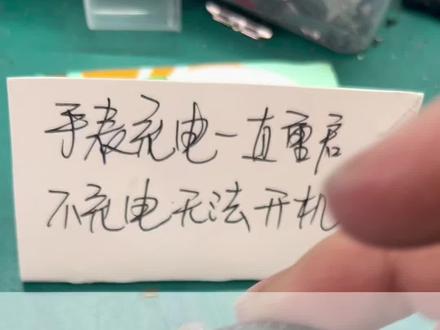 手表充电一直重启
不充电无法开机